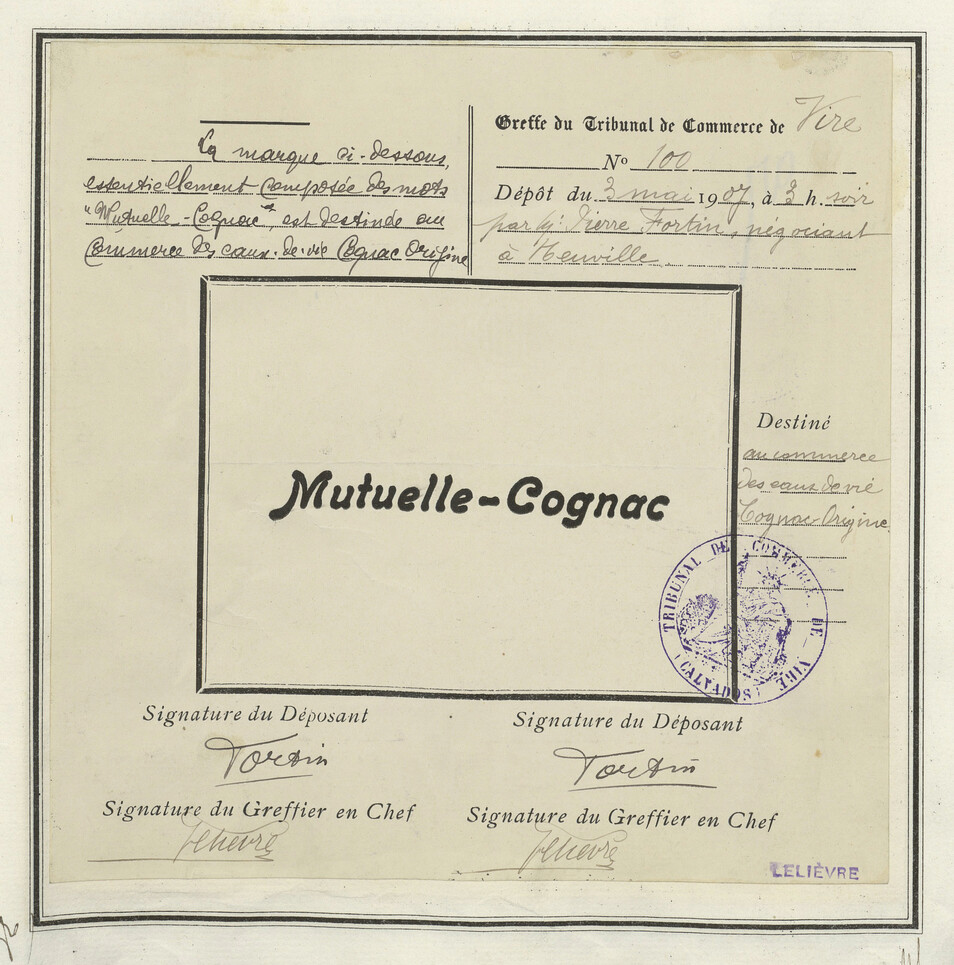 La marque ci-dessous,
essentiellement composée des mots
"Mutuelle-Cognac", est destinée au
Commerce des eaux-de-vie Cognac Origine
Greffe du Tribunal de Commerce de Vire
Nº 100
Dépôt du 3 mai 1907, à 3 h. soir
par M. Pierre Fortin, négociant
à Neuville
Mutuelle-Cognac
Destiné
au commerce
des eaux de vie
Cognac-Origine
TRIBUNAL DE COMMERCE DE VIRE
(CALVADOS)
Signature du Déposant
Fortin
Signature du Déposant
Fortin
Signature du Greffier en Chef
Lelievre
Signature du Greffier en Chef
Lelievre
LELIÈVRE